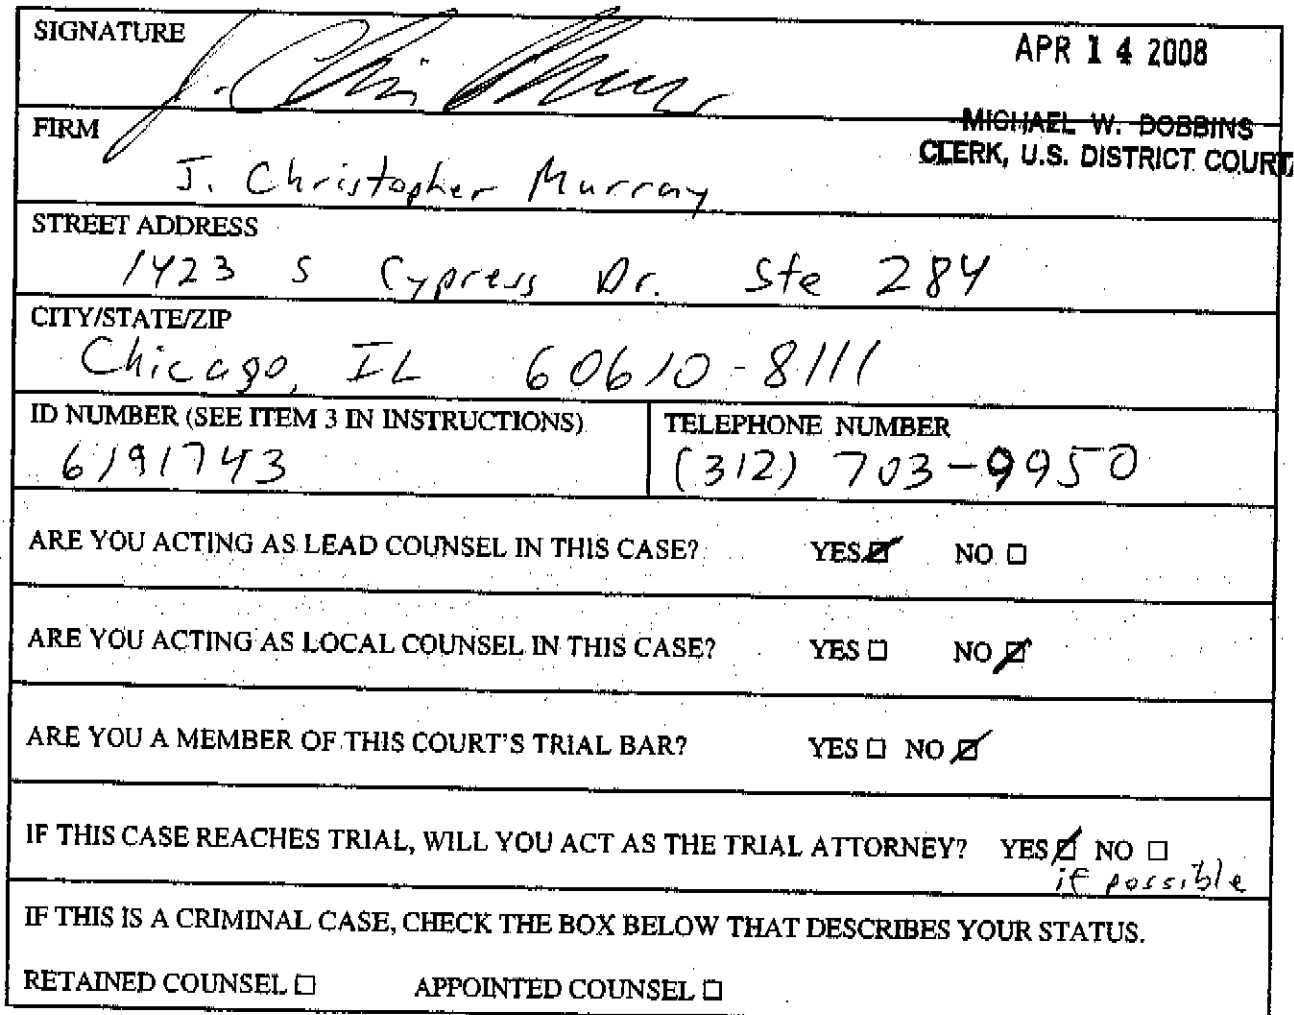 SIGNATURE
APR 14 2008
MICHAEL W. DOBBINS
CLERK, U.S. DISTRICT COURT
FIRM
J. Christopher Murray
STREET ADDRESS
1423 S Cypress Dr. Ste 284
CITY/STATE/ZIP
Chicago, IL 60610-8111
ID NUMBER (SEE ITEM 3 IN INSTRUCTIONS) TELEPHONE NUMBER
6191743 (312) 703-9950
ARE YOU ACTING AS LEAD COUNSEL IN THIS CASE? YES ☑ NO ☐
ARE YOU ACTING AS LOCAL COUNSEL IN THIS CASE? YES ☐ NO ☑
ARE YOU A MEMBER OF THIS COURT'S TRIAL BAR? YES ☐ NO ☑
IF THIS CASE REACHES TRIAL, WILL YOU ACT AS THE TRIAL ATTORNEY? YES ☑ NO ☐
if possible
IF THIS IS A CRIMINAL CASE, CHECK THE BOX BELOW THAT DESCRIBES YOUR STATUS.
RETAINED COUNSEL ☐ APPOINTED COUNSEL ☐